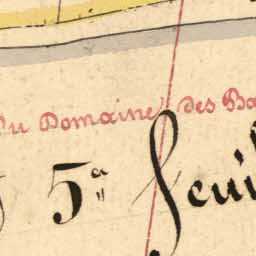 Du Domaine des Ba
5a feuil